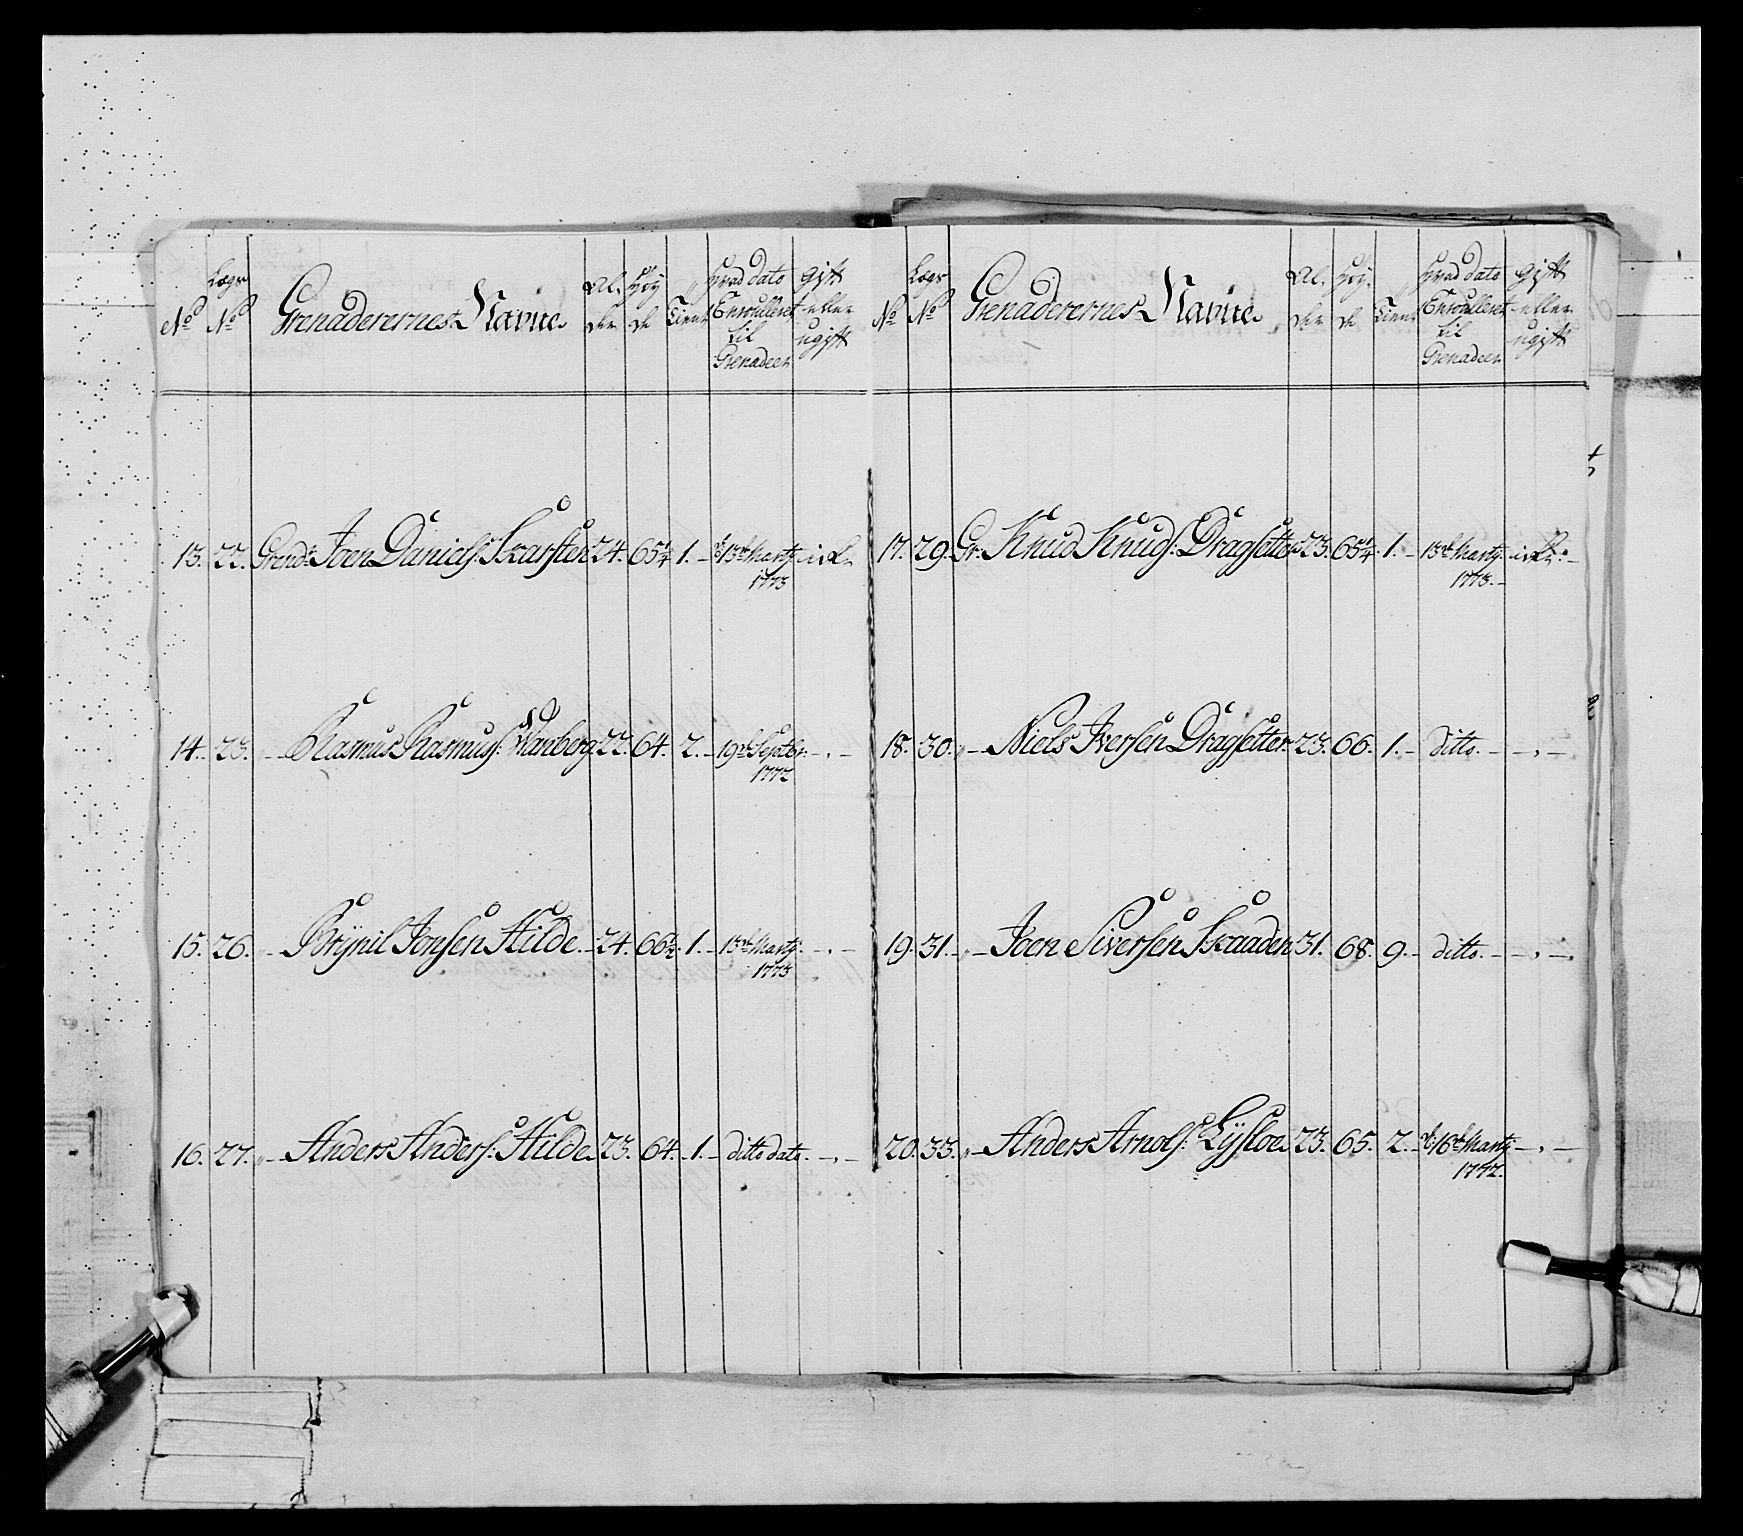 No
Lægs No
Grenaderernes Navne
Alder
Høyde
Tient
Hvad dato Enroulleret til Grenadeer
gift eller ugift
13. 22. Grend: Joen Daniels: Skarsten 24. 65 1. d: 13de Marty
1773
14. 23. „ Rasmus Rasmus: Wanberg 22. 64. 2. 19de Septbr: „
1772
15. 26. „ Brynil Jonsen Hilde 24. 66½ 1. 13de Marty: „
1773
16. 27. „ Anders Anders: Hilde 23. 64. 1. ditto dato „
No
Lægs No
Grenaderernes Navne
Alder
Høyde
Tient
Hvad dato Enroulleret til Grenadeer
gift eller ugift
17. 29. Gr: Knud Knuds: Dragsetter 23. 65¼ 1. 13de Marty:
1773.
18. 30. „ Niels Iversen Dragsetter 23. 66. 1. ditto. „
19. 31. „ Joen Siversen Skaaden 31. 68. 9. ditto. „
20. 33. „ Anders Arnols: Lysloe 23. 65. 2. d: 18de Marty „
1772.